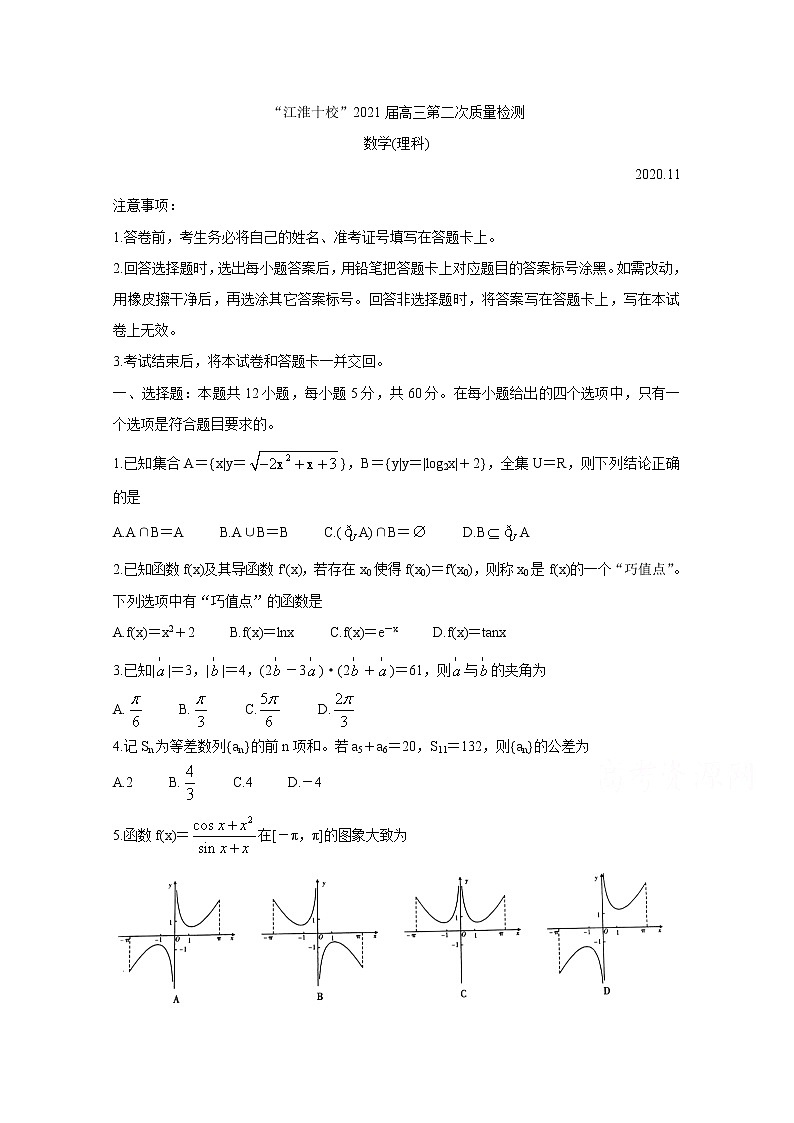 “江淮十校”2021届高三第二次质量检测
数学(理科)
2020.11
注意事项：
1.答卷前，考生务必将自己的姓名、准考证号填写在答题卡上。
2.回答选择题时，选出每小题答案后，用铅笔把答题卡上对应题目的答案标号涂黑。如需改动，
用橡皮擦干净后，再选涂其它答案标号。回答非选择题时，将答案写在答题卡上，写在本试
卷上无效。
3.考试结束后，将本试卷和答题卡一并交回。
一、选择题：本题共12小题，每小题5分，共60分。在每小题给出的四个选项中，只有一
个选项是符合题目要求的。
1.已知集合A＝{x|y＝√(−2x²+x+3)}，B＝{y|y＝|log₂x|＋2}，全集U＝R，则下列结论正确
的是
A.A∩B＝A B.A∪B＝B C.(ðU A)∩B＝∅ D.B⊆ðU A
2.已知函数f(x)及其导函数f'(x)，若存在x₀使得f(x₀)＝f'(x₀)，则称x₀是f(x)的一个“巧值点”。
下列选项中有“巧值点”的函数是
A.f(x)＝x²＋2 B.f(x)＝lnx C.f(x)＝e⁻ˣ D.f(x)＝tanx
3.已知|a|＝3，|b|＝4，(2b－3a)·(2b＋a)＝61，则a与b的夹角为
A.π/6 B.π/3 C.5π/6 D.2π/3
4.记Sₙ为等差数列{aₙ}的前n项和。若a₅＋a₆＝20，S₁₁＝132，则{aₙ}的公差为
A.2 B.4/3 C.4 D.－4
5.函数f(x)＝(cos x+x²)/(sin x+x)在[－π，π]的图象大致为
y 1 −π −1 O 1 π x −1 A
y 1 −π −1 O 1 π x −1 B
y 1 −π −1 O 1 π x −1 C
y 1 −π −1 O 1 π x −1 D